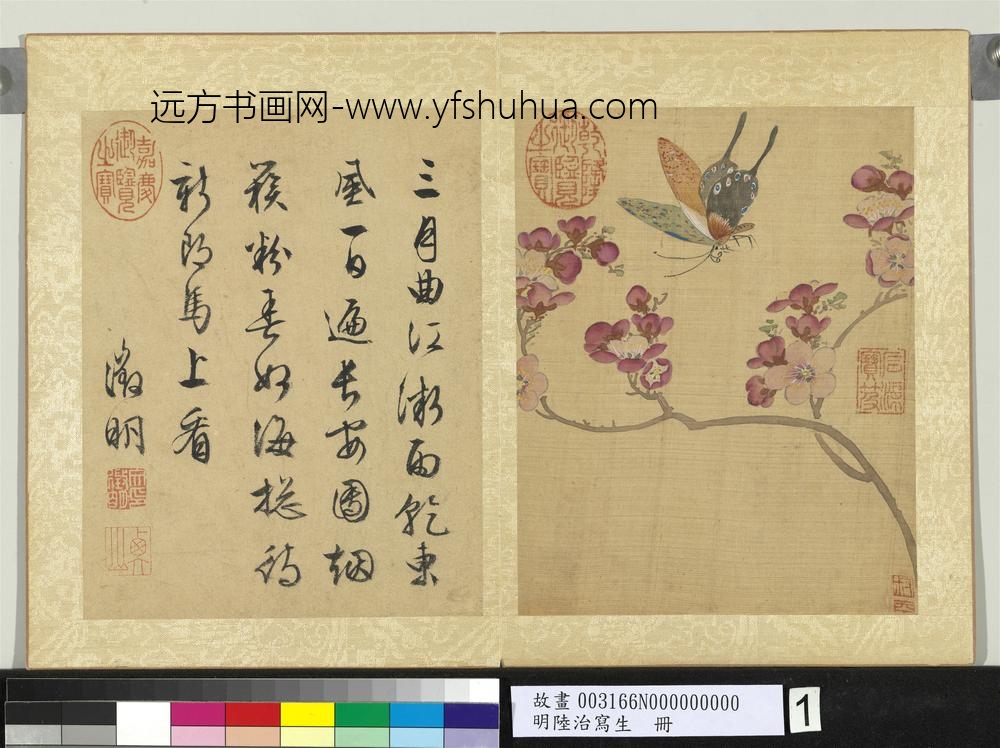 远方书画网-www.yfshuhua.com
乾隆御覽之寶
石渠寶笈
三月曲江微雨乾東
風一日遍長安團烟
簇粉春如海
新郎馬上看
徵明
嘉慶御覽之寶
故畫 003166N000000000
明陸治寫生 冊
1